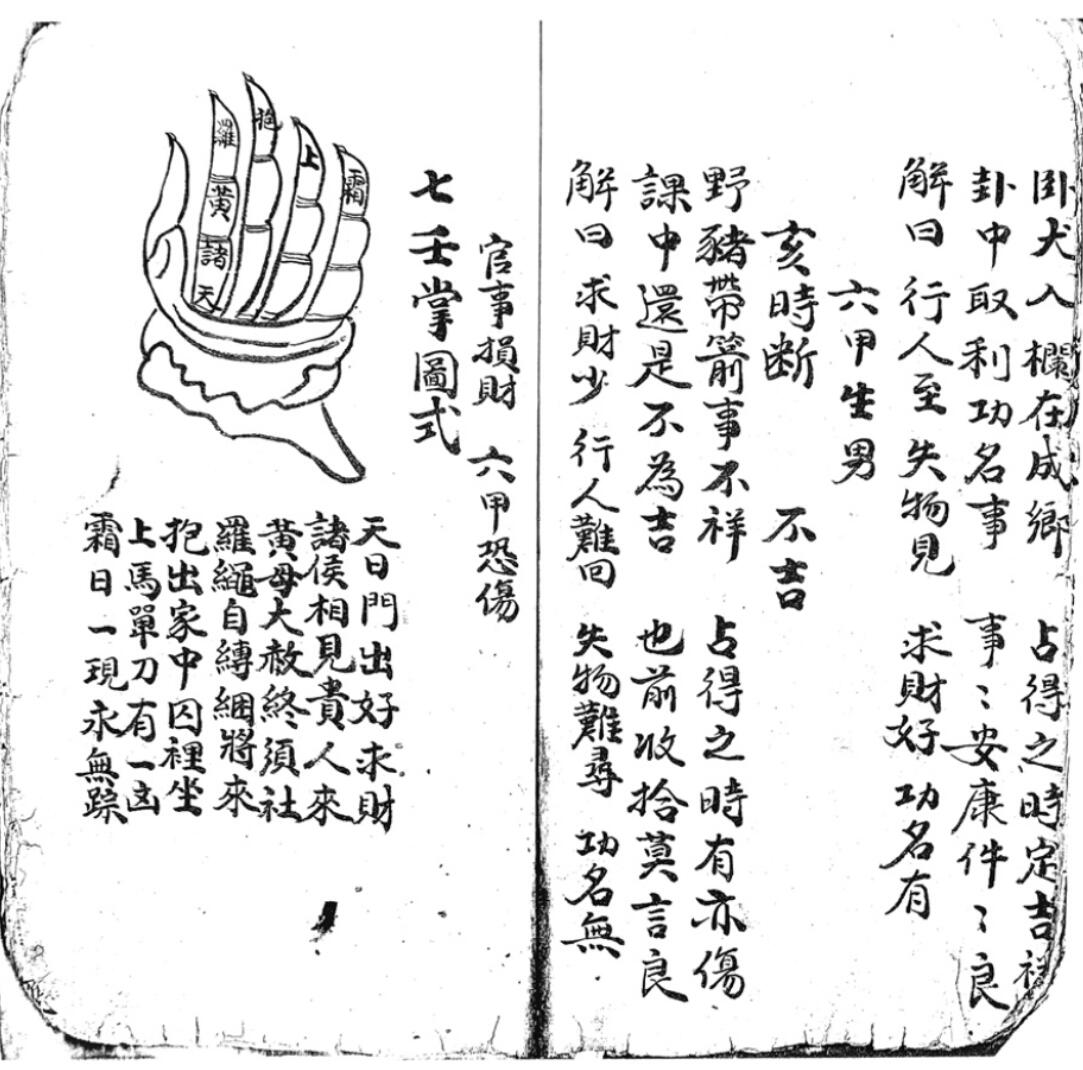 卧犬入欄在成鄉　占得之時定吉祥
卦中取利功名事　事〻安康件〻良
解曰　行人至　失物見　求財好　功名有
六甲生男
亥時断　不吉
野豬帶箭事不祥　占得之時有亦傷
課中還是不為吉　也前收拾莫言良
解曰　求財少　行人難回　失物難尋　功名無
官事損財　六甲恐傷
七壬掌圖式
霜
上
抱
羅
黃
諸
天
天日門出好求財
諸侯相見貴人來
黃母大赦終須社
羅繩自縛綑將來
抱出家中囚裡坐
上馬單刀有一凶
霜日一現永無踪